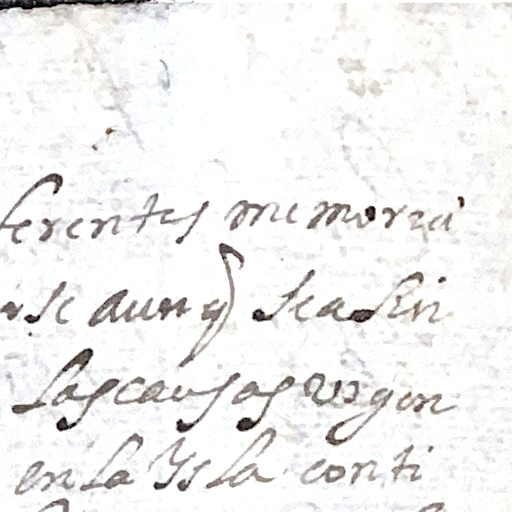 ferentes memoria
se aunq sea sin
Las causas vrgen
en la Ysla conti